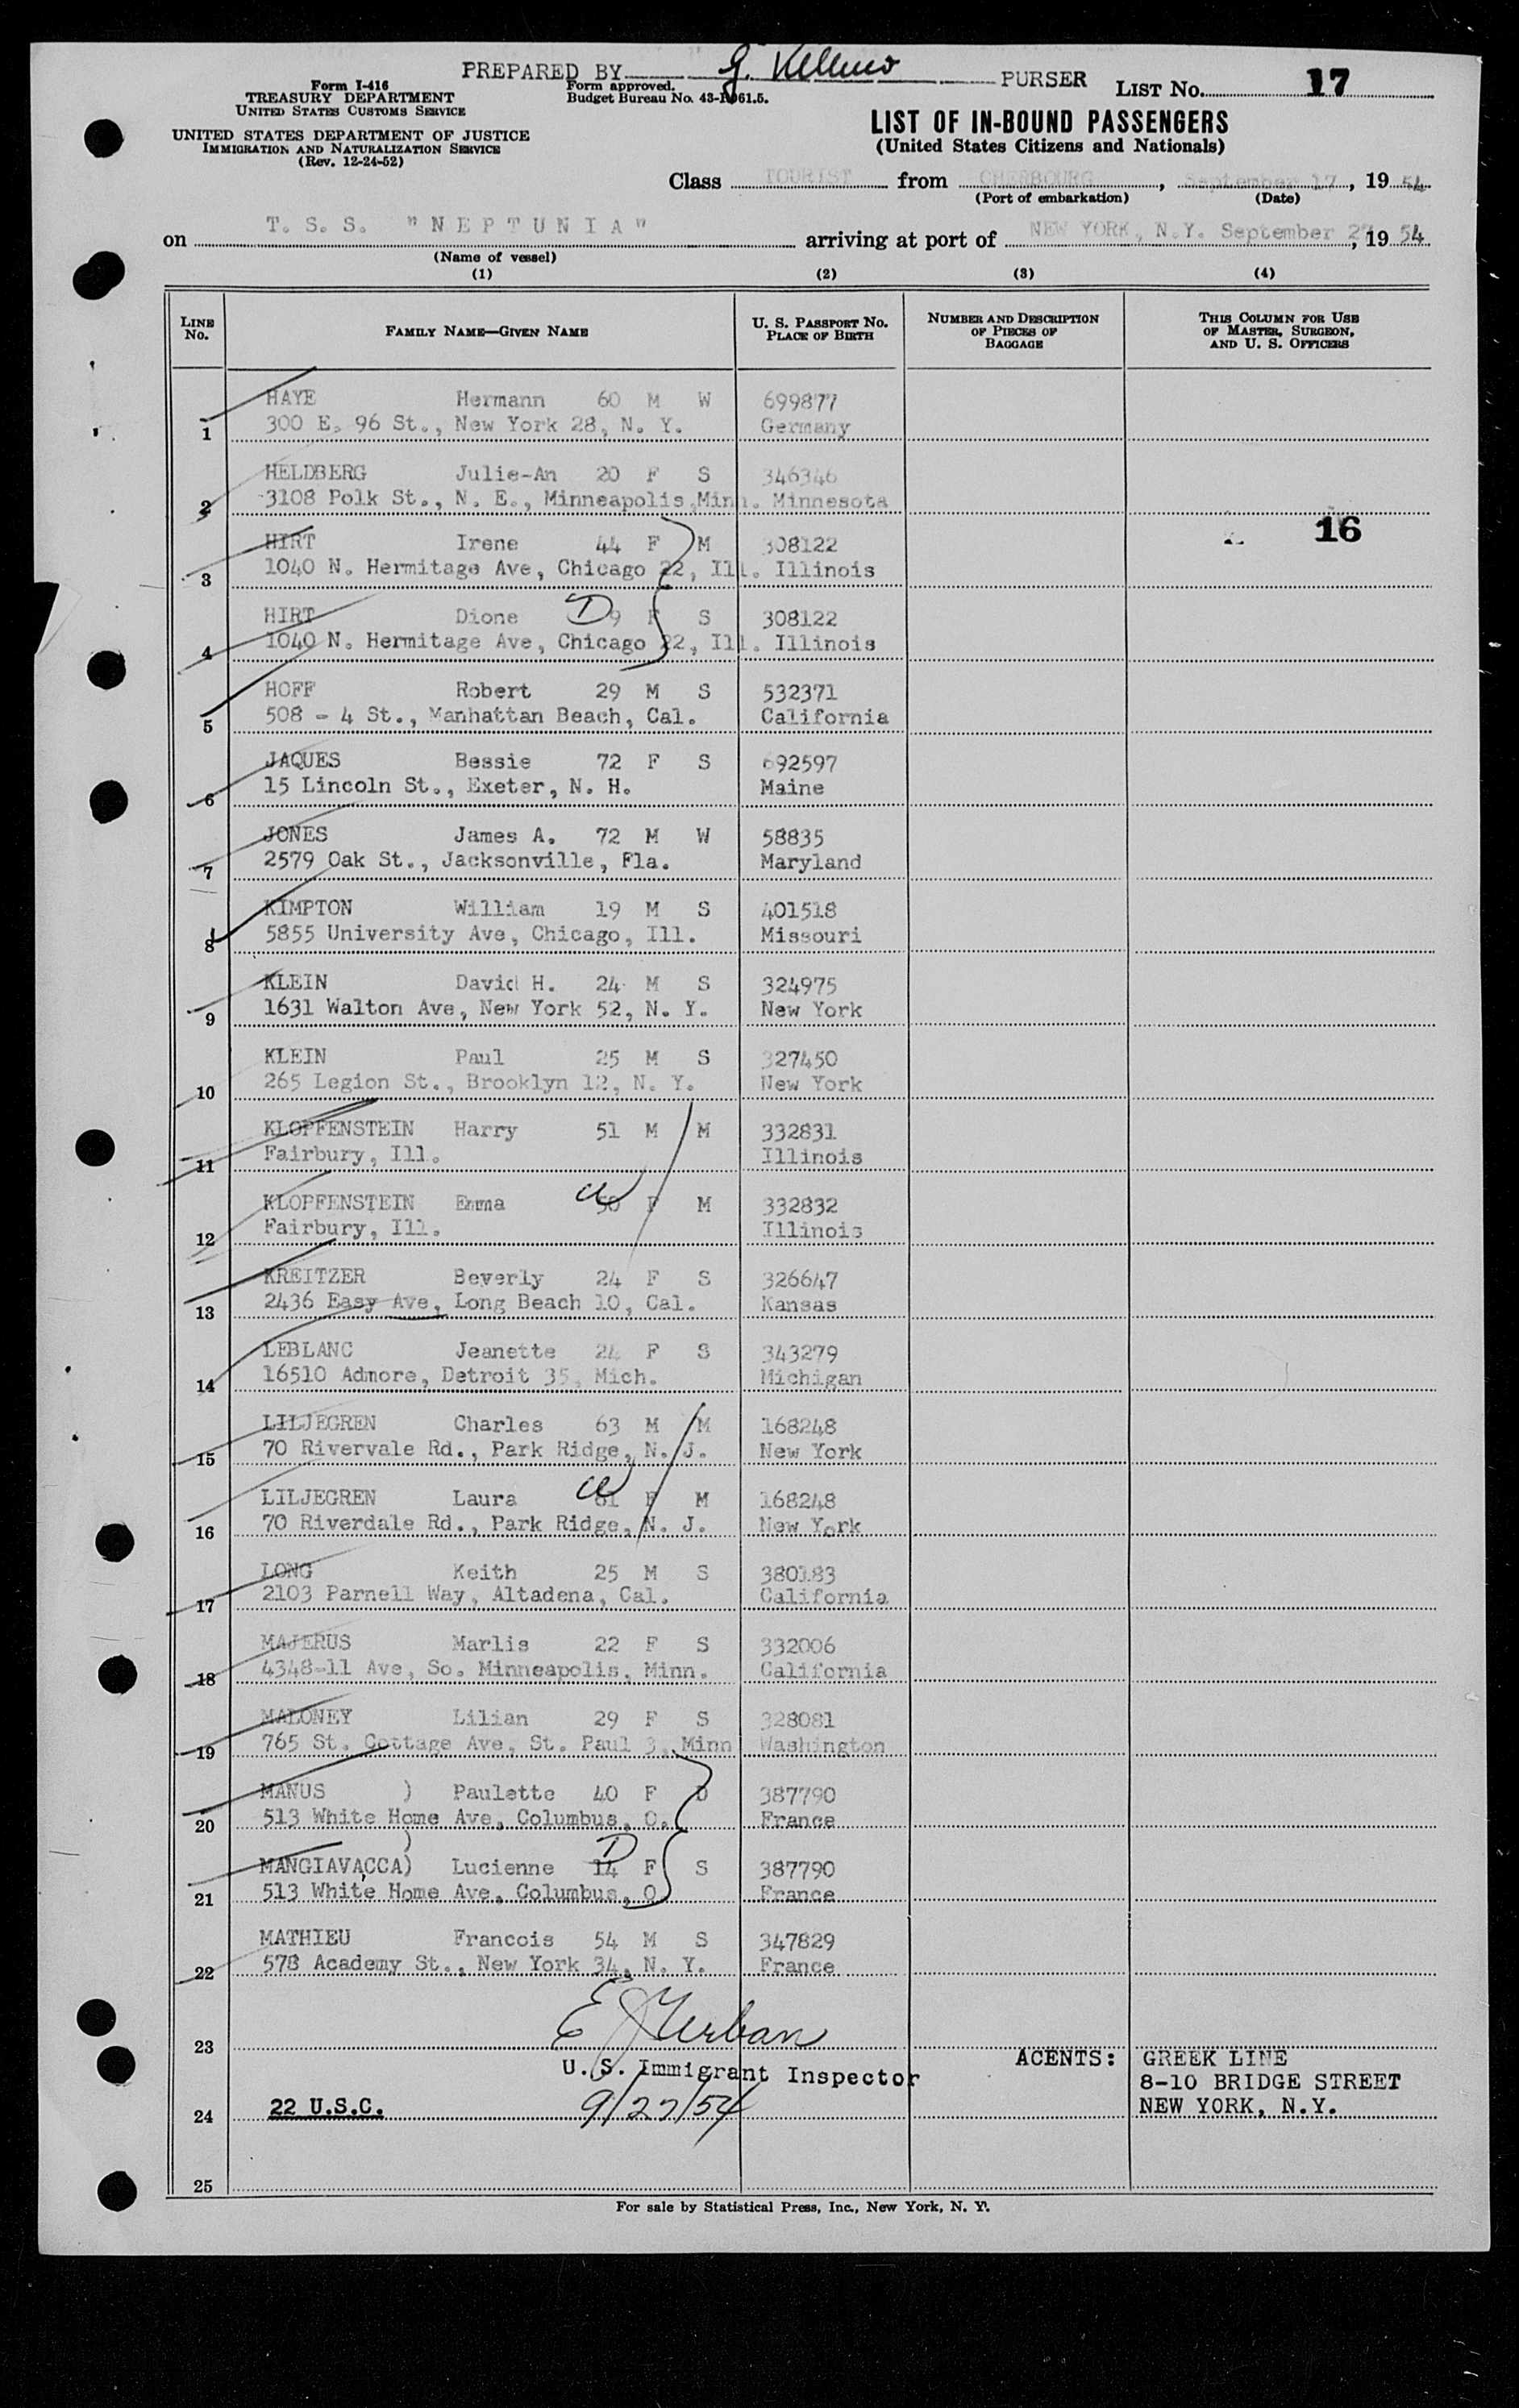 PREPARED BY G. Kelleno PURSER LIST No. 17
Form I-416
TREASURY DEPARTMENT
UNITED STATES CUSTOMS SERVICE
Form approved.
Budget Bureau No. 43-R061.5.
UNITED STATES DEPARTMENT OF JUSTICE
IMMIGRATION AND NATURALIZATION SERVICE
(Rev. 12-24-52)
LIST OF IN-BOUND PASSENGERS
(United States Citizens and Nationals)
Class TOURIST from CHERBOURG, September 17, 19 54
(Port of embarkation) (Date)
on T. S. S. "NEPTUNIA" arriving at port of NEW YORK, N.Y. September 27, 19 54
(Name of vessel)
(1) (2) (3) (4)
LINE No. FAMILY NAME—GIVEN NAME U. S. PASSPORT NO. PLACE OF BIRTH NUMBER AND DESCRIPTION OF PIECES OF BAGGAGE THIS COLUMN FOR USE OF MASTER, SURGEON, AND U. S. OFFICERS
HAYE Hermann 60 M W 699877
1 300 E. 96 St., New York 28, N. Y. Germany
HELDBERG Julie-An 20 F S 346346
2 3108 Polk St., N. E., Minneapolis,Minn. Minnesota
16
HIRT Irene 44 F M 308122
3 1040 N. Hermitage Ave, Chicago 22, Ill. Illinois
HIRT Dione D 9 F S 308122
4 1040 N. Hermitage Ave, Chicago 22, Ill. Illinois
HOFF Robert 29 M S 532371
5 508 - 4 St., Manhattan Beach, Cal. California
JAQUES Bessie 72 F S 692597
6 15 Lincoln St., Exeter, N. H. Maine
JONES James A. 72 M W 58835
7 2579 Oak St., Jacksonville, Fla. Maryland
KIMPTON William 19 M S 401518
8 5855 University Ave, Chicago, Ill. Missouri
KLEIN David H. 24 M S 324975
9 1631 Walton Ave, New York 52, N. Y. New York
KLEIN Paul 25 M S 327450
10 265 Legion St., Brooklyn 12, N. Y. New York
KLOPFENSTEIN Harry 51 M M 332831
11 Fairbury, Ill. Illinois
KLOPFENSTEIN Emma 50 F M 332832
12 Fairbury, Ill. Illinois
KREITZER Beverly 24 F S 326647
13 2436 Easy Ave, Long Beach 10, Cal. Kansas
LEBLANC Jeanette 24 F S 343279
14 16510 Admore, Detroit 35, Mich. Michigan
LILJEGREN Charles 63 M M 168248
15 70 Rivervale Rd., Park Ridge, N. J. New York
LILJEGREN Laura 61 F M 168248
16 70 Riverdale Rd., Park Ridge, N. J. New York
LONG Keith 25 M S 380183
17 2103 Parnell Way, Altadena, Cal. California
MAJERUS Marlis 22 F S 332006
18 4348-11 Ave, So. Minneapolis, Minn. California
MALONEY Lilian 29 F S 328081
19 765 St. Cottage Ave, St. Paul 3, Minn Washington
MANUS ) Paulette 40 F D 387790
20 513 White Home Ave, Columbus, O. France
)
MANGIAVACCA) Lucienne D 14 F S 387790
21 513 White Home Ave, Columbus, O France
MATHIEU Francois 54 M S 347829
22 578 Academy St., New York 34, N. Y. France
E J Urban
23
U. S. Immigrant Inspector
ACENTS: GREEK LINE
8-10 BRIDGE STREET
24 22 U.S.C. 9/27/54 NEW YORK, N.Y.
25
For sale by Statistical Press, Inc., New York, N. Y.